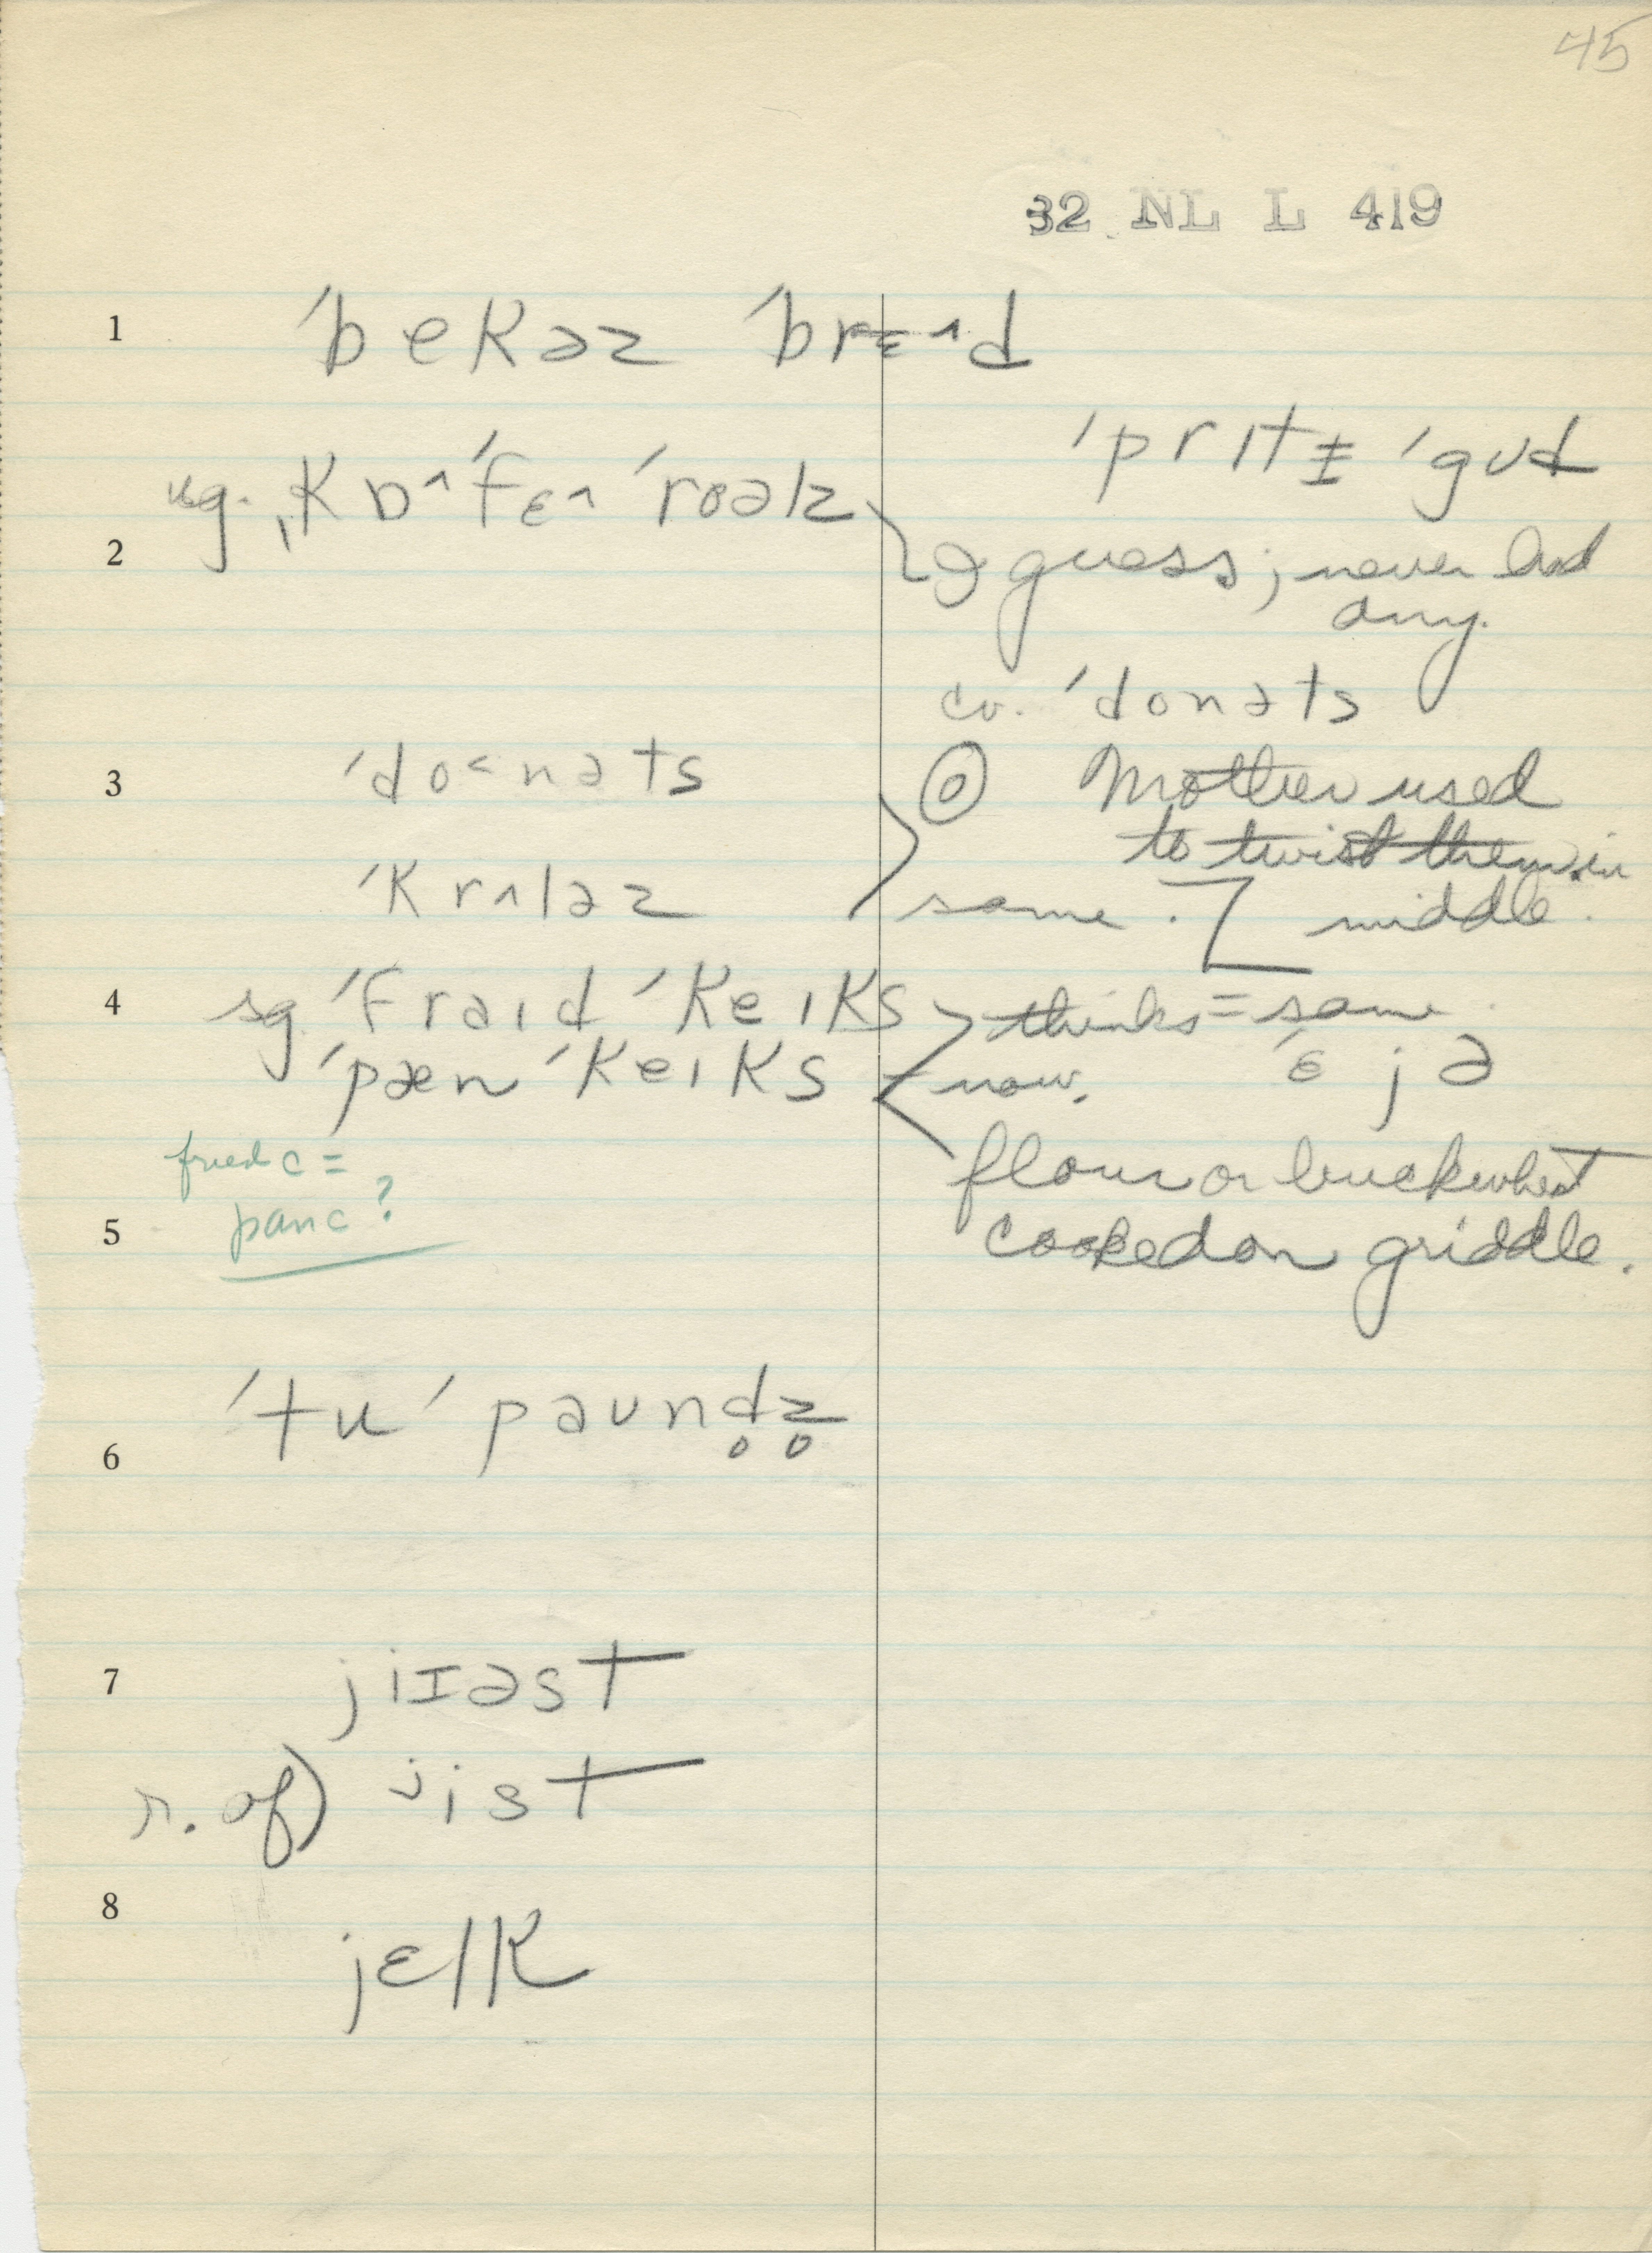 45
32 NL L 419
1 ˈbekəz ˈbrɛ˄d
ˈprɪtɨ ˈgʊd
sg. ˌkɒ˄ˈfɛ˄ ˈroəlz
2 I guess; never had
any.
cv. ˈdonəts
3 ˈdo˂nəts ◎ Mother used
to twist them in
ˈkrʌləz same. middle.
4 sg. ˈfraɪd ˈkeɪks thinks = same
ˈpæn ˈkeɪks now. ˈɛjə
fried c =
panc?
flour or buckwheat
5 cooked on griddle.
6 ˈtu ˈpaʊnd̥z̥
7 jiɪəst
r. of) jist
8 jɛlk